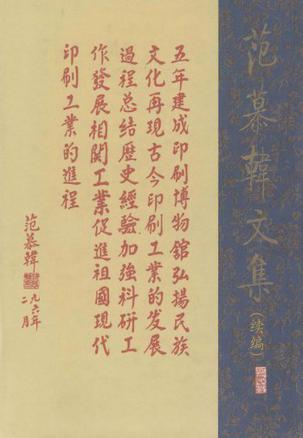 范慕韩文集
（续编）
五年建成印刷博物舘弘揚民族
文化再現古今印刷工業的发展
過程总结歷史經驗加強科研工
作發展相関工業促進祖國現代
印刷工業的進程
范慕韓
一九九六年
二月